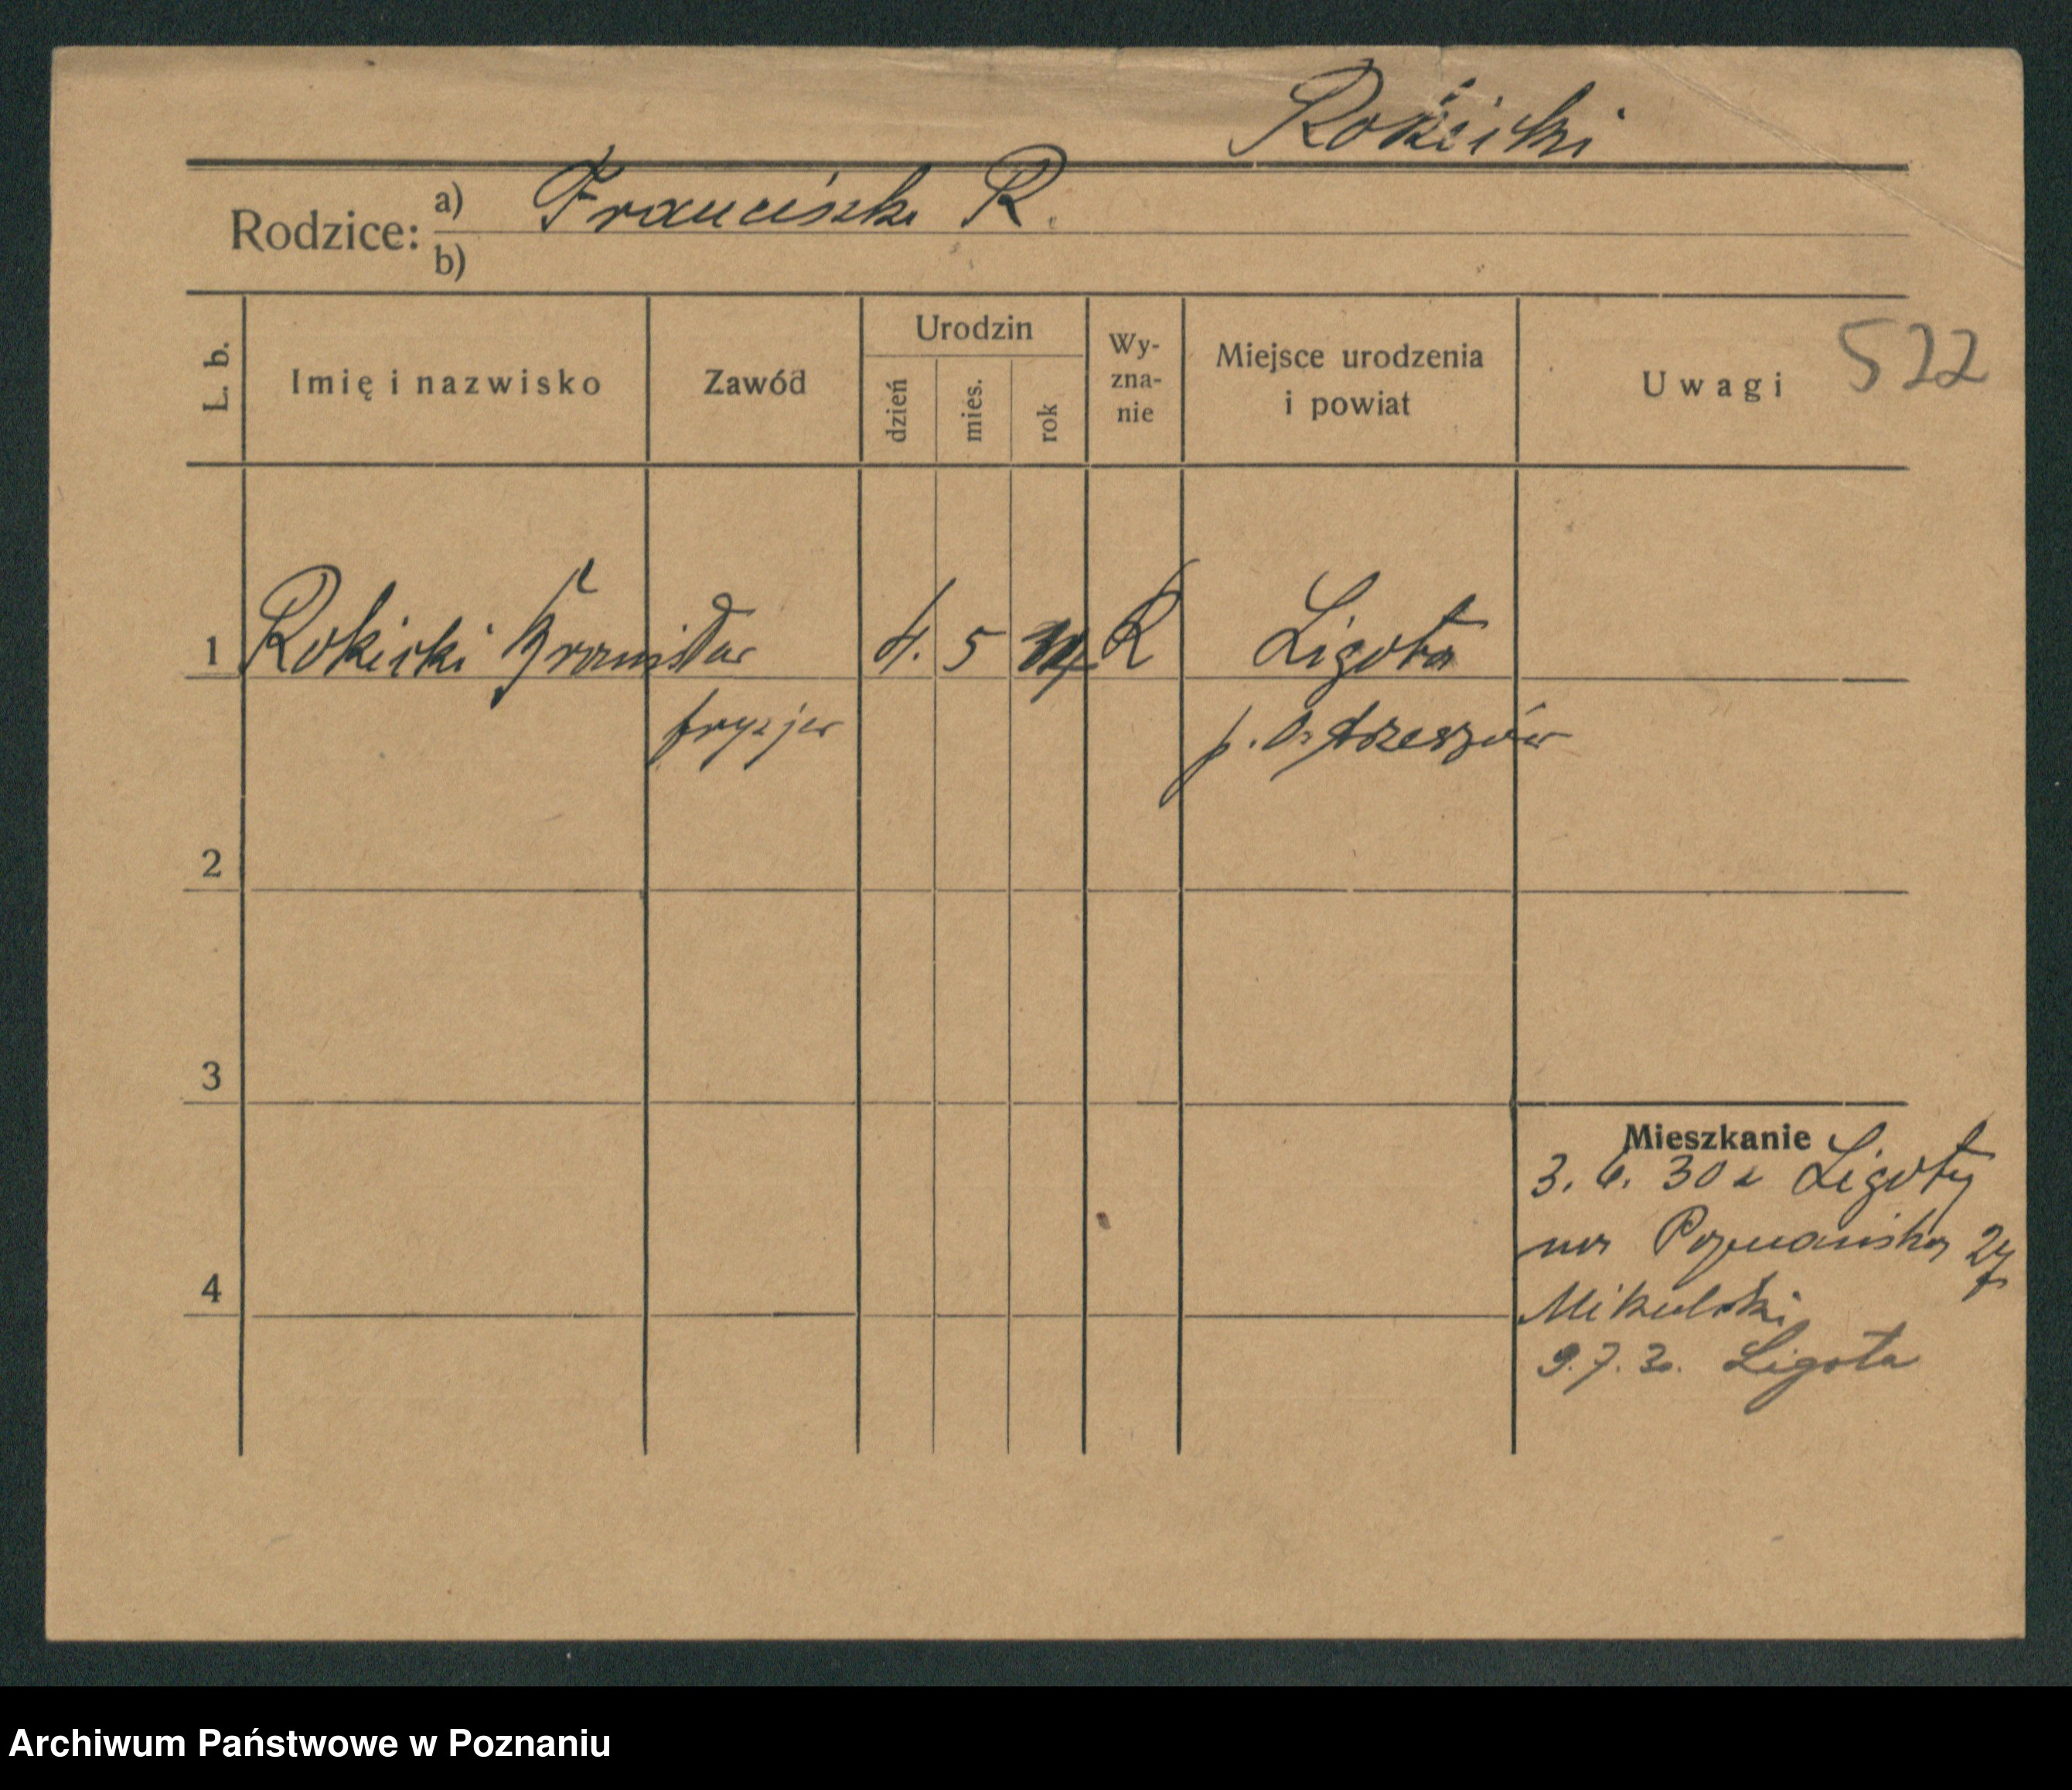 Rokicki
Rodzice: a) Franciszk R.
b)
L. b. Imię i nazwisko Zawód Urodzin dzień mies. rok Wy-zna-nie Miejsce urodzenia i powiat Uwagi 522
1 Rokicki 4. 5 R Ligota
fryzjer p. Ostrzeszów
2
3
Mieszkanie
3. 6. 30 z Ligoty
na Poznańską
4
Mikulski
9. 7. 30. Ligota
Archiwum Państwowe w Poznaniu